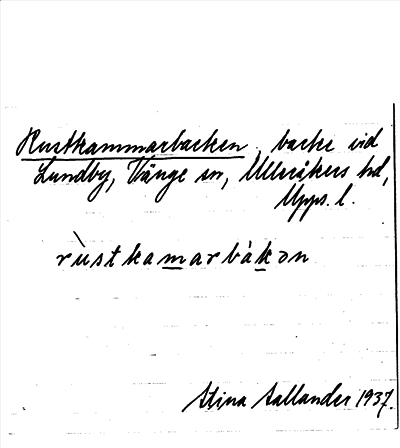 Rustkammarbacken, backe vid
Lundby, Vänge sn, Ulleråkers hd,
Upps. l.
rùstkamarbàkən
Stina Aallander 1937.